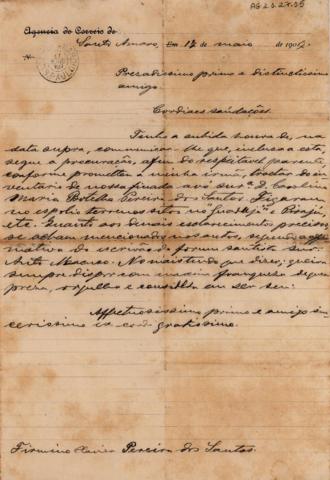 AG 2.3.27.35
Agencia do Correio de
Santo Amaro, Em 17 de maio de 190
Nº
Presadissimo primo e distinctissimo
amigo.
Cordiaes saudações.
Tenho a subida honra de, na
data supra, communicar-lhe que, inclusa a esta,
segue a procuração, afim do respeitavel parente,
conforme prometteu á minha irmã, tratar do in-
ventario de nossa finada avó snrª. D. Carolina
Maria Botelha Pereira dos Santos. Ficaram
no espolio terrenos sitos no e
Quanto aos demais esclarecimentos precisos
se acham mencionados nos autos, segundo affir-
mativa do escrivão do forum santista snr.
Macuco. No mais tendo que dizer, queira
sempre dispor com maxima franqueza de quem
preza, orgulha e consulta em ser seu:
Affectuosissimo primo e amigo sin-
cerissimo ex corde gratissimo.
Firmino Pereira dos Santos.